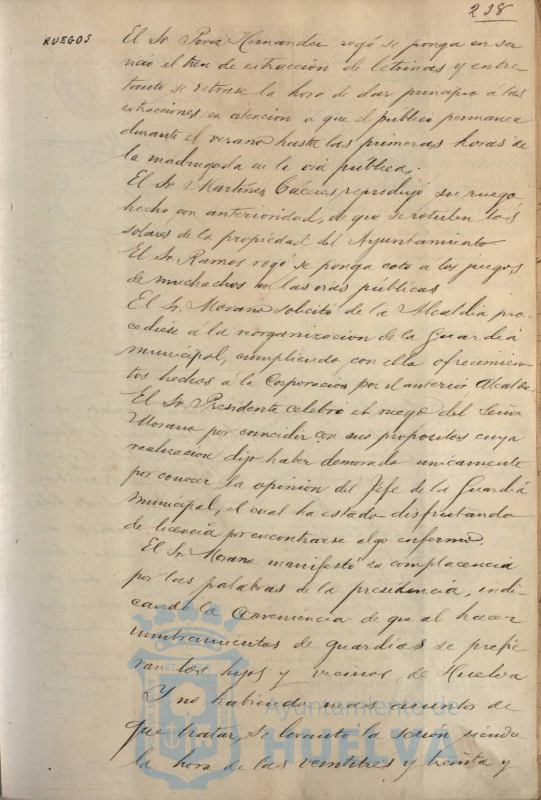 218
RUEGOS
El Sr. Perez Hernandez rogó se ponga en ser
vicio el tren de extraccion de letrinas y entre
tanto se retrase la hora de dar principio a las
extracciones, en atencion a que el publico permanece
durante el verano hasta las primeras horas de
la madrugada en la vía publica.
El Sr. Martinez Cáceres reprodujo su ruego
hecho con anterioridad, de que se rotulen los
solares de la propiedad del Ayuntamiento
El Sr. Ramos rogó se ponga coto a los juegos
de muchachos en las vias publicas
El Sr. Morano solicitó de la Alcaldia pro-
cediese a la reorganizacion de la Guardia
municipal, cumpliendo con ella ofrecimien-
tos hechos a la Corporacion por el anterior Alcalde
El Sr. Presidente celebró el ruego del Señor
Morano por coincidir con sus propositos cuya
realizacion dijo haber demorado unicamente
por conocer la opinion del Jefe de la Guardia
municipal, el cual ha estado disfrutando
de licencia por encontrarse algo enfermo.
El Sr. Morano manifestó su complacencia
por las palabras de la presidencia, indi-
cando la conveniencia de que al hacer
nombramientos de guardias se prefie
ran los hijos y vecinos de Huelva
Y no habiendo mas asuntos de
que tratar se levantó la sesion siendo
la hora de las veintitres y treinta y
Ayuntamiento de
HUELVA